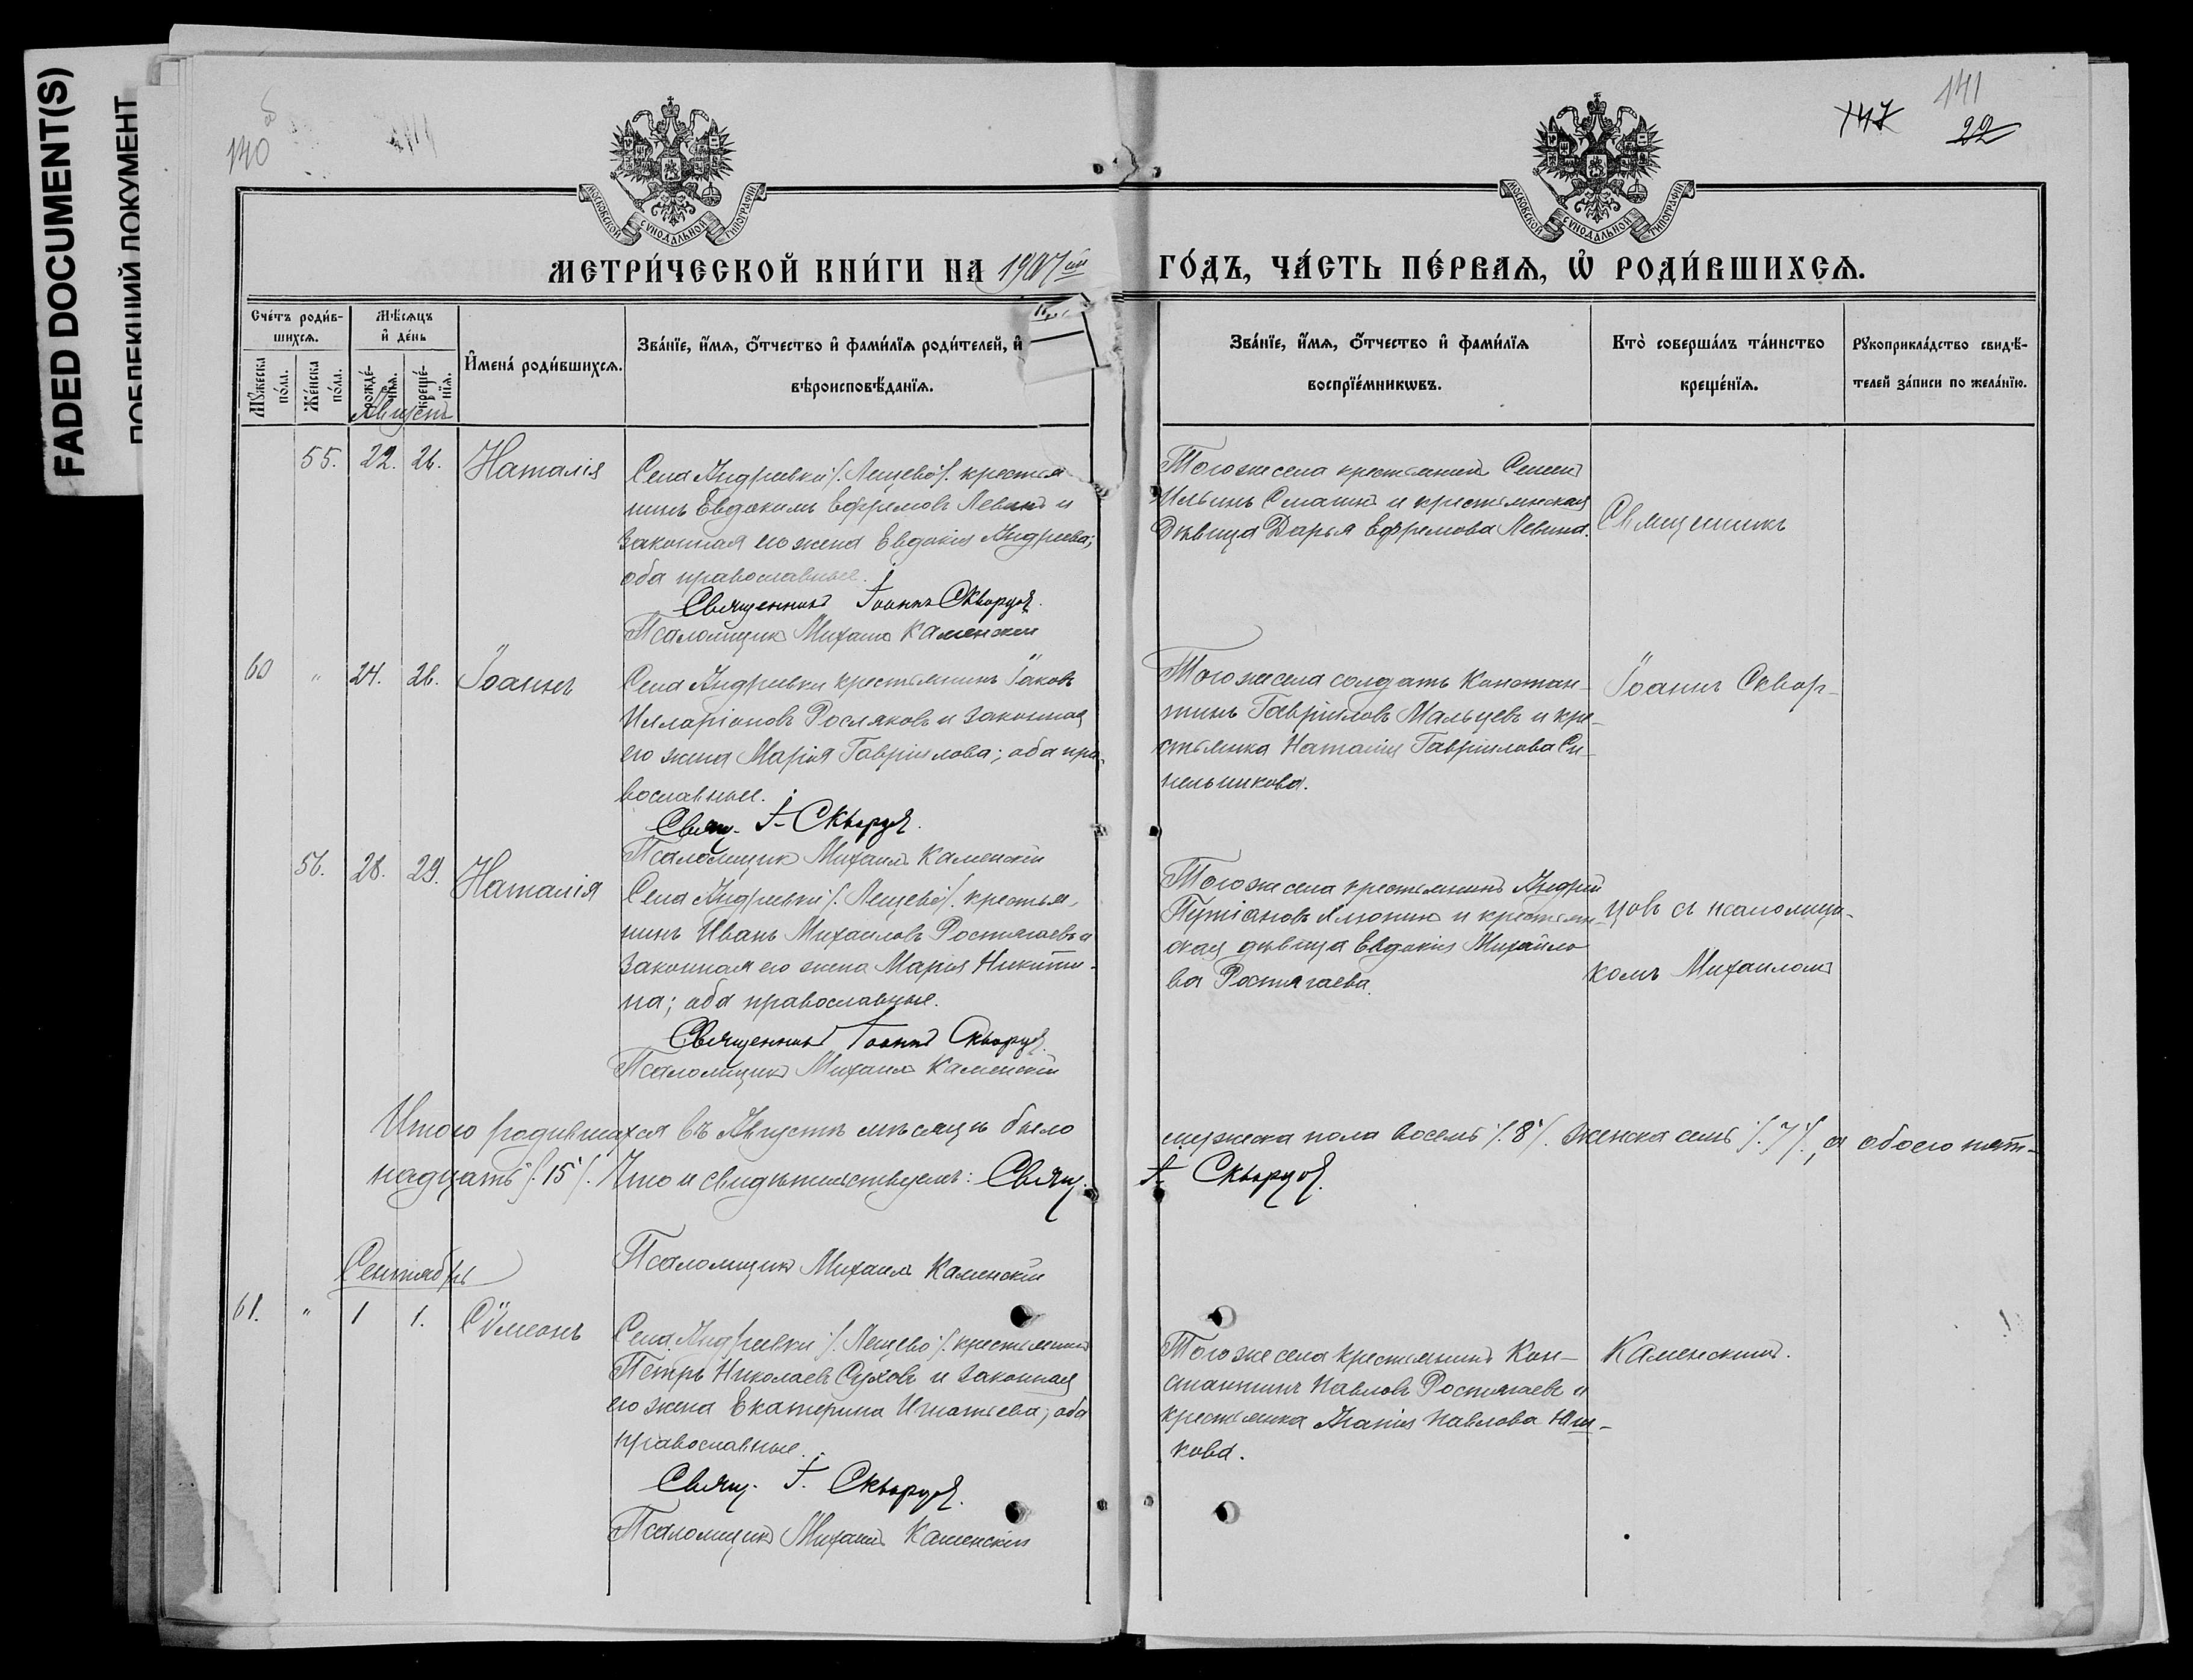 FADED DOCUMENT(S)
140
об
147
141
22
МОСКОВСКОЙ СѴНОДАЛЬНОЙ ТИПОГРАФІИ
МОСКОВСКОЙ СѴНОДАЛЬНОЙ ТИПОГРАФІИ
МЕТРИ́ЧЕСКОЙ КНИ́ГИ НА 1907й ГО́ДЪ, ЧА́СТЬ ПЕ́РВАѦ, Ѽ РОДИ́ВШИХСѦ.
Сче́тъ роди́в-
шихсѧ.
Мꙋжеска по́ла.
Же́нска по́ла.
Мѣ́сѧцъ
и҆ де́нь
рожде́-
нїѧ.
креще́-
нїѧ.
И҆мена̀ роди́вшихсѧ.
Зва́нїе, и҆́мѧ, ѻ҆́тчество и҆ фами́лїѧ роди́телей, и҆
вѣроисповѣ́данїѧ.
Зва́нїе, и҆́мѧ, ѻ҆́тчество и҆ фами́лїѧ
воспрїе́мникѡвъ.
Кто̀ соверша́лъ та́инство
креще́нїѧ.
Рꙋкоприкла́дство свидѣ́-
телей за́писи по жела́нїю.
Августъ
55. 22. 26. Наталія
Села Андреевки /. Лещево /. крестья
нинъ Евдокимъ Ефремовъ Левинъ и
законная его жена Евдокія Андреева;
оба православные.
Священникъ Іоаннъ Скворцовъ.
Псаломщикъ Михаилъ Каменскій
Того же села крестьянинъ Семенъ
Ильинъ Смагинъ и крестьянская
дѣвица Дарья Ефремова Левина.
Священникъ
60 " 24. 26. Іоаннъ
Села Андреевки крестьянинъ Іаковъ
Илларіоновъ Росляковъ и законная
его жена Марія Гавріилова; оба пра-
вославные.
Свящ. І. Скворцовъ.
Псаломщикъ Михаилъ Каменскій
Того же села солдатъ Констан-
тинъ Гавріиловъ Мальцевъ и кре-
стьянка Наталія Гавріилова Си-
нельникова.
Іоаннъ Сквор-
56. 28. 29. Наталія
Села Андреевки /. Лещево /. крестья-
нинъ Иванъ Михаиловъ Ростягаевъ и
законная его жена Марія Никити-
на; оба православные.
Священникъ Іоаннъ Скворцовъ.
Псаломщикъ Михаилъ Каменскій
Того же села крестьянинъ Андрей
и крестьян-
ская дѣвица Евдокія Михаило
ва Ростягаева.
цовъ съ псаломщи-
комъ Михаиломъ
Итого родившихся въ Августѣ мѣсяцѣ было мужеска пола восемь /. 8 /. женска семь /. 7 /., а обоего пят-
надцать /. 15 /. Что и свидѣтельствуемъ: Свящ. І. Скворцовъ.
Псаломщикъ Михаилъ Каменскій
Сентябрь
61. " 1 1. Сѷмеонъ
Села Андреевки /. Лещево /. крестьянинъ
Петръ Николаевъ Суховъ и законная
его жена Екатерина Игнатьева; оба
православные.
Свящ. І. Скворцовъ.
Псаломщикъ Михаилъ Каменскій
Того же села крестьянинъ Кон-
стантинъ Павловъ Ростягаевъ и
крестьянка Агапія Павлова Юш-
кова.
Каменскимъ.